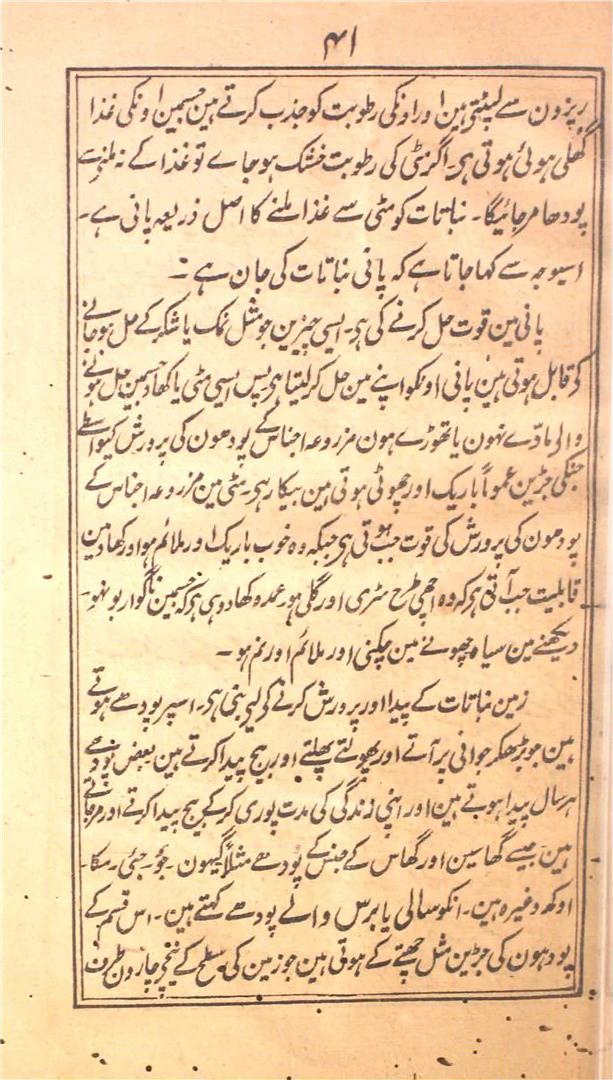 ۴۱
ریزون سے لپٹتی ہین اور اونکی رطوبت کو جذب کرتے ہین جسمین اونکی غذا
گھلی ہوئی ہوتی ہی۔ اگر مٹی کی رطوبت خشک ہو جاے تو غذا کے نہ ملنے سے
پودھا مر جائیگا۔ نباتات کو مٹی سے غذا ملنے کا اصل ذریعہ پانی ہے۔
اسیوجہ سے کہا جاتا ہے کہ پانی نباتات کی جان ہے ۔
پانی مین قوت حل کرنے کی ہی۔ ایسی چیزین جو مثل نمک یا شکر کے حل ہو جانے
کے قابل ہوتی ہین پانی اونکو اپنے مین حل کر لیتا ہی پس ایسی مٹی یا کھاد جسمین حل ہونے
والی مادّے نہون یا تھوڑے ہون مزروعہ اجناس کے پودھون کی پرورش کیواسطے
جنکی جڑین عموماً باریک اور چھوٹی ہوتی ہین بیکار ہی۔ مٹی مین مزروعہ اجناس کے
پودھون کی پرورش کی قوت جب ہوتی ہی جبکہ وہ خوب باریک اور ملائم ہو اور کھاد مین
قابلیت جب آتی ہی کہ وہ اچھی طرح سڑی اور گلی ہو عمدہ کھاد وہی ہی کہ جسمین ناگوار بو نہو۔
دیکھنے مین سیاہ چھونے مین چکنی اور ملائم اور نم ہو ۔
زمین نباتات کے پیدا اور پرورش کرنے کی لیے بنی ہی۔ اسپر پودھے ہوتے
ہین جو بڑھکر جوانی پر آتے اور پھولتے پھلتے اور بیج پیدا کرتے ہین بعض پودھے
ہر سال پیدا ہوتے ہین اور اپنی زندگی کی مدت پوری کر کے بیج پیدا کرتے اور مر جاتے
ہین جیسے گھاسین اور گھاس کے جنس کے پودھے مثلاً گیہون۔ جَو۔ جئی۔ مکا۔
اوکھ وغیرہ ہین۔ انکو سالی یا برس والے پودھے کہتے ہین۔ اس قسم کے
پودہون کی جڑین مثل جھتے کے ہوتی ہین جو زمین کی سطح کے نیچے چارون طرف